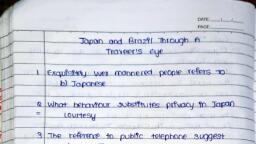 DATE
PAGE
Japan and Brazil Through A
Traveler's eye
1 Exquisitely well mannered people refers to
b) Japanese
2 What behaviour substitutes privacy in Japan
= courtesy
3 The reference to public telephone suggest